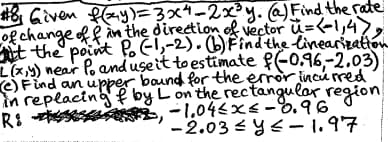 #8, Given f(x,y)=3x⁴-2x³y. (a) Find the rate
of change of f in the direction of vector u⃗=<-1,4>,
at the point P₀(-1,-2). (b) Find the linearization
L(x,y) near P₀ and use it to estimate f(-0.96,-2.03)
(c) Find an upper bound for the error incurred
in replacing f by L on the rectangular region
R: , -1.04≤x≤-0.96
-2.03≤y≤-1.97